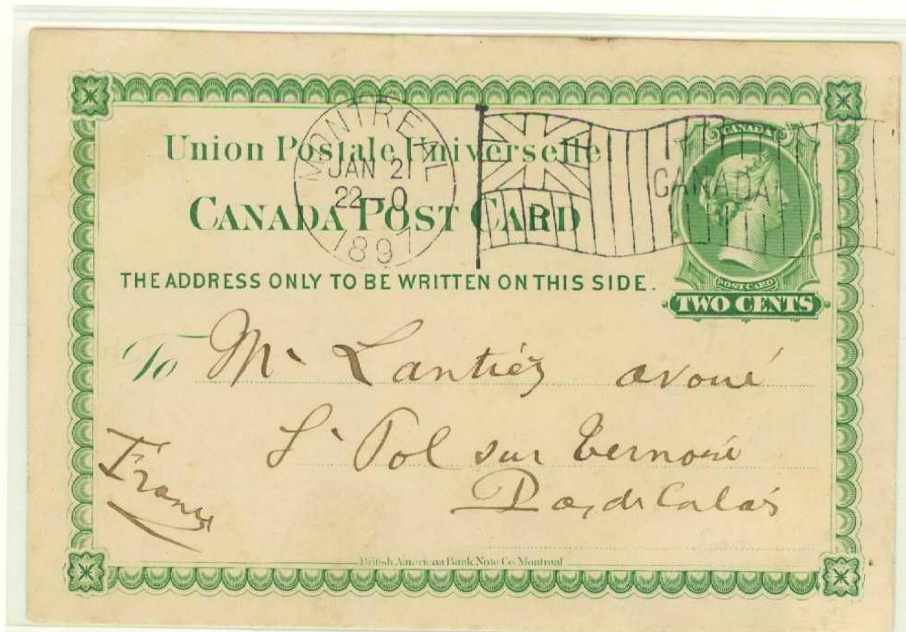 Union Postale Universelle.
MONTREAL
JAN 21
22-0
189
CANADA POST CARD
B
CANADA
CANADA
POST CARD
TWO CENTS
THE ADDRESS ONLY TO BE WRITTEN ON THIS SIDE.
To Mr Lantiéz avoué
St Pol sur Ternoise
Pas de Calais
France
British American Bank Note Co. Montreal